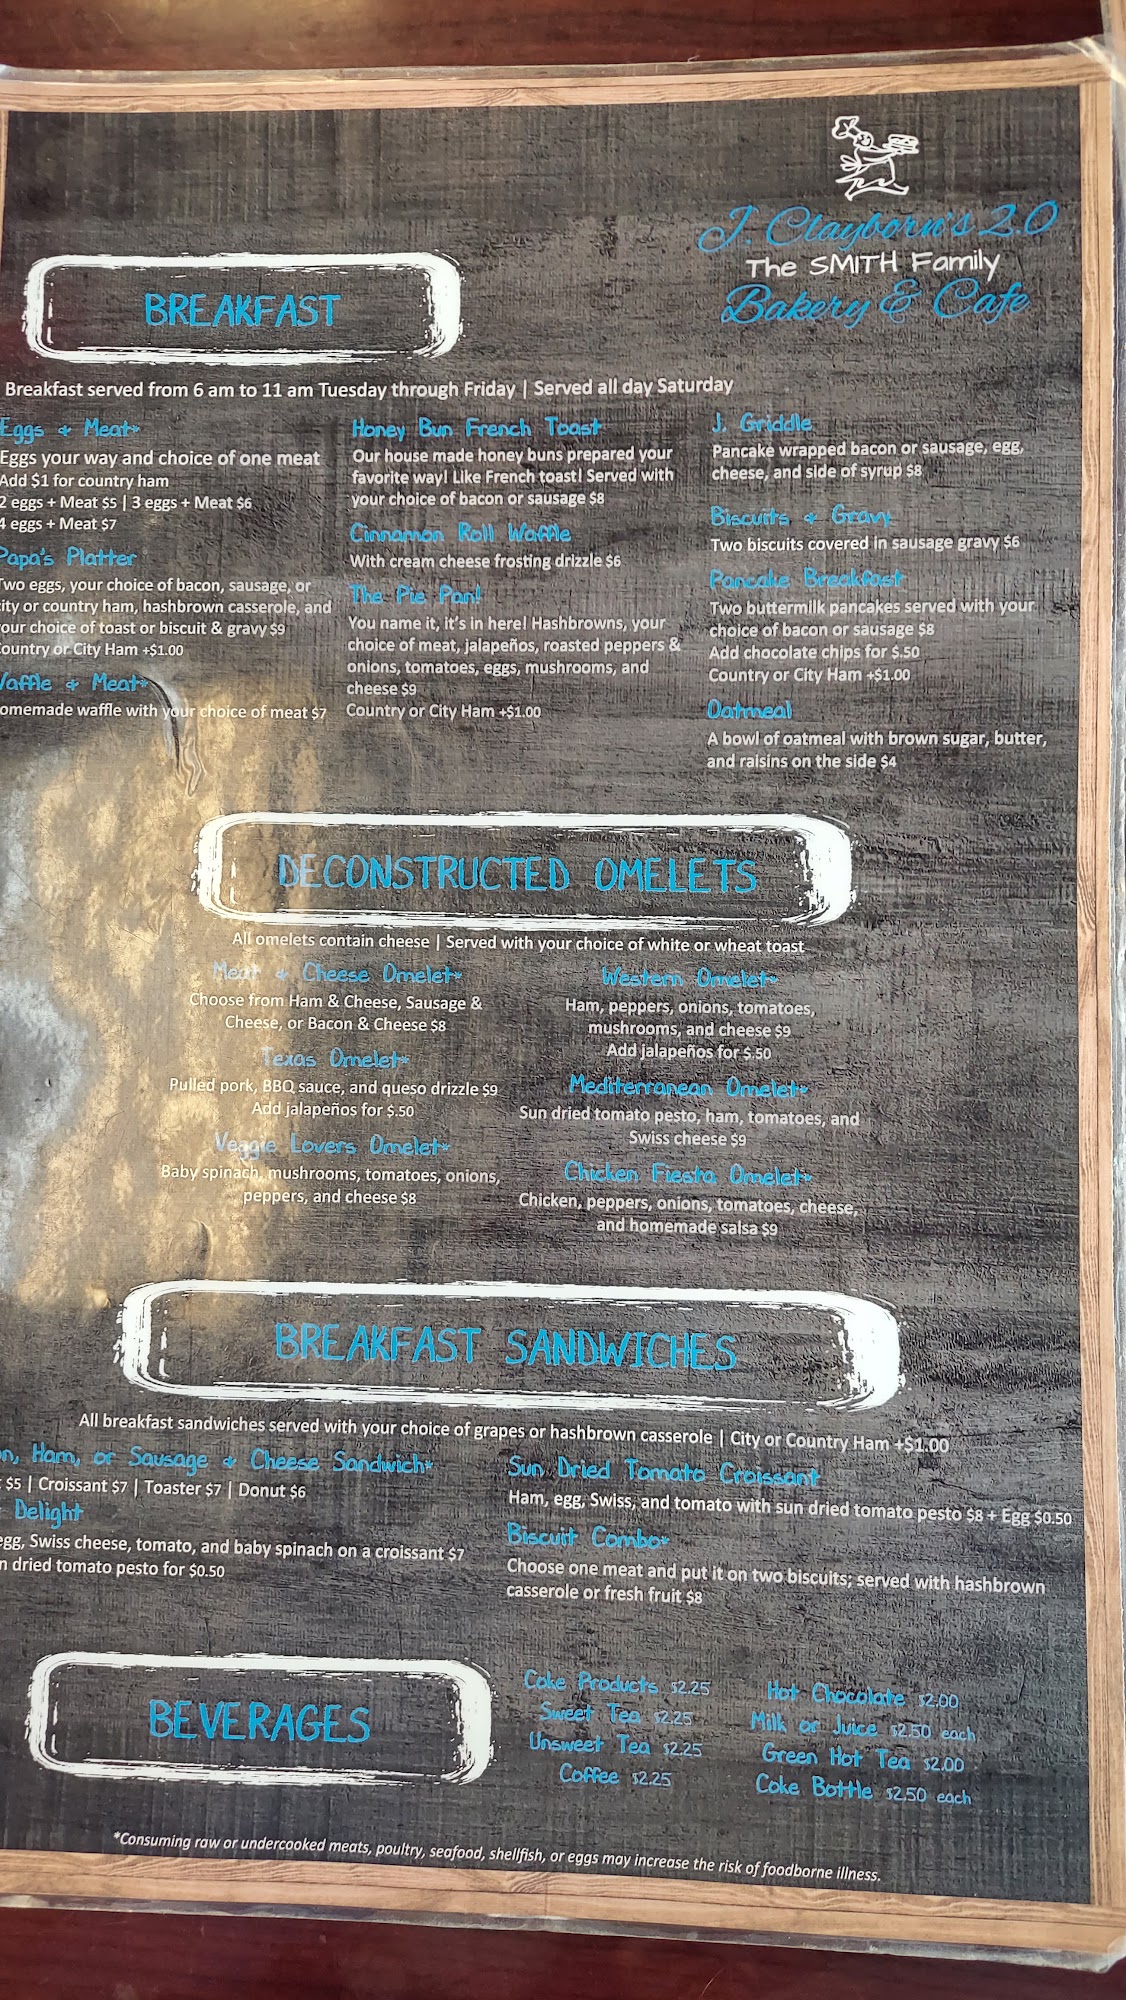 J. Clayborn's 2.0
The SMITH Family
Bakery & Cafe
BREAKFAST
Breakfast served from 6 am to 11 am Tuesday through Friday | Served all day Saturday
Eggs & Meat*
Eggs your way and choice of one meat
Add $1 for country ham
2 eggs + Meat $5 | 3 eggs + Meat $6
4 eggs + Meat $7
Papa's Platter
Two eggs, your choice of bacon, sausage, or
city or country ham, hashbrown casserole, and
your choice of toast or biscuit & gravy $9
Country or City Ham +$1.00
Waffle & Meat*
omemade waffle with your choice of meat $7
Honey Bun French Toast
Our house made honey buns prepared your
favorite way! Like French toast! Served with
your choice of bacon or sausage $8
Cinnamon Roll Waffle
With cream cheese frosting drizzle $6
The Pie Pan!
You name it, it's in here! Hashbrowns, your
choice of meat, jalapeños, roasted peppers &
onions, tomatoes, eggs, mushrooms, and
cheese $9
Country or City Ham +$1.00
J. Griddle
Pancake wrapped bacon or sausage, egg,
cheese, and side of syrup $8
Biscuits & Gravy
Two biscuits covered in sausage gravy $6
Pancake Breakfast
Two buttermilk pancakes served with your
choice of bacon or sausage $8
Add chocolate chips for $.50
Country or City Ham +$1.00
Oatmeal
A bowl of oatmeal with brown sugar, butter,
and raisins on the side $4
DECONSTRUCTED OMELETS
All omelets contain cheese | Served with your choice of white or wheat toast
Meat & Cheese Omelet*
Choose from Ham & Cheese, Sausage &
Cheese, or Bacon & Cheese $8
Texas Omelet*
Pulled pork, BBQ sauce, and queso drizzle $9
Add jalapeños for $.50
Veggie Lovers Omelet*
Baby spinach, mushrooms, tomatoes, onions,
peppers, and cheese $8
Western Omelet*
Ham, peppers, onions, tomatoes,
mushrooms, and cheese $9
Add jalapeños for $.50
Mediterranean Omelet*
Sun dried tomato pesto, ham, tomatoes, and
Swiss cheese $9
Chicken Fiesta Omelet*
Chicken, peppers, onions, tomatoes, cheese,
and homemade salsa $9
BREAKFAST SANDWICHES
All breakfast sandwiches served with your choice of grapes or hashbrown casserole | City or Country Ham +$1.00
on, Ham, or Sausage & Cheese Sandwich*
$5 | Croissant $7 | Toaster $7 | Donut $6
Delight
egg, Swiss cheese, tomato, and baby spinach on a croissant $7
n dried tomato pesto for $0.50
Sun Dried Tomato Croissant
Ham, egg, Swiss, and tomato with sun dried tomato pesto $8 + Egg $0.50
Biscuit Combo*
Choose one meat and put it on two biscuits; served with hashbrown
casserole or fresh fruit $8
BEVERAGES
Coke Products $2.25
Sweet Tea $2.25
Unsweet Tea $2.25
Coffee $2.25
Hot Chocolate $2.00
Milk or Juice $2.50 each
Green Hot Tea $2.00
Coke Bottle $2.50 each
*Consuming raw or undercooked meats, poultry, seafood, shellfish, or eggs may increase the risk of foodborne illness.